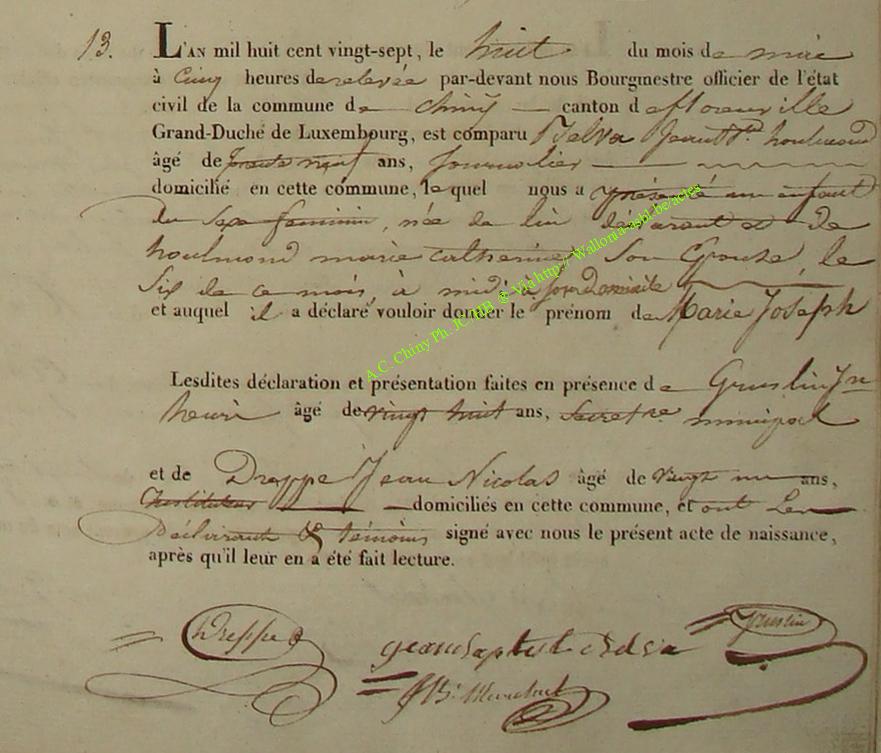 13. L'AN mil huit cent vingt-sept, le huit du mois de mai
à Cinq heures de relevée par-devant nous Bourgmestre officier de l'état
civil de la commune de chiny canton de florenville
Grand-Duché de Luxembourg, est comparu Delva Jean Bte houlmond
âgé de trente neuf ans, Journalier
domicilié en cette commune, lequel nous a présenté un enfant
du Sexe feminin, née de lui déclarant et de
houlmond marie catherine Son Epouse, le
Six de ce mois, à midi à son domicile
et auquel il a déclaré vouloir donner le prénom de Marie Joseph
Lesdites déclaration et présentation faites en présence de Gruslin Jn
henri âgé de vingt huit ans, Secretre municipal
et de Dreppe Jean Nicolas âgé de vingt un ans,
Instituteur domiciliés en cette commune, et ont Les
Déclarant & témoins signé avec nous le présent acte de naissance,
après qu'il leur en a été fait lecture.
Dreppe geanbaptist delva Gruslin
A C. Chiny Ph. JC HB ® Via http:// Wallonia-asbl.be/actes